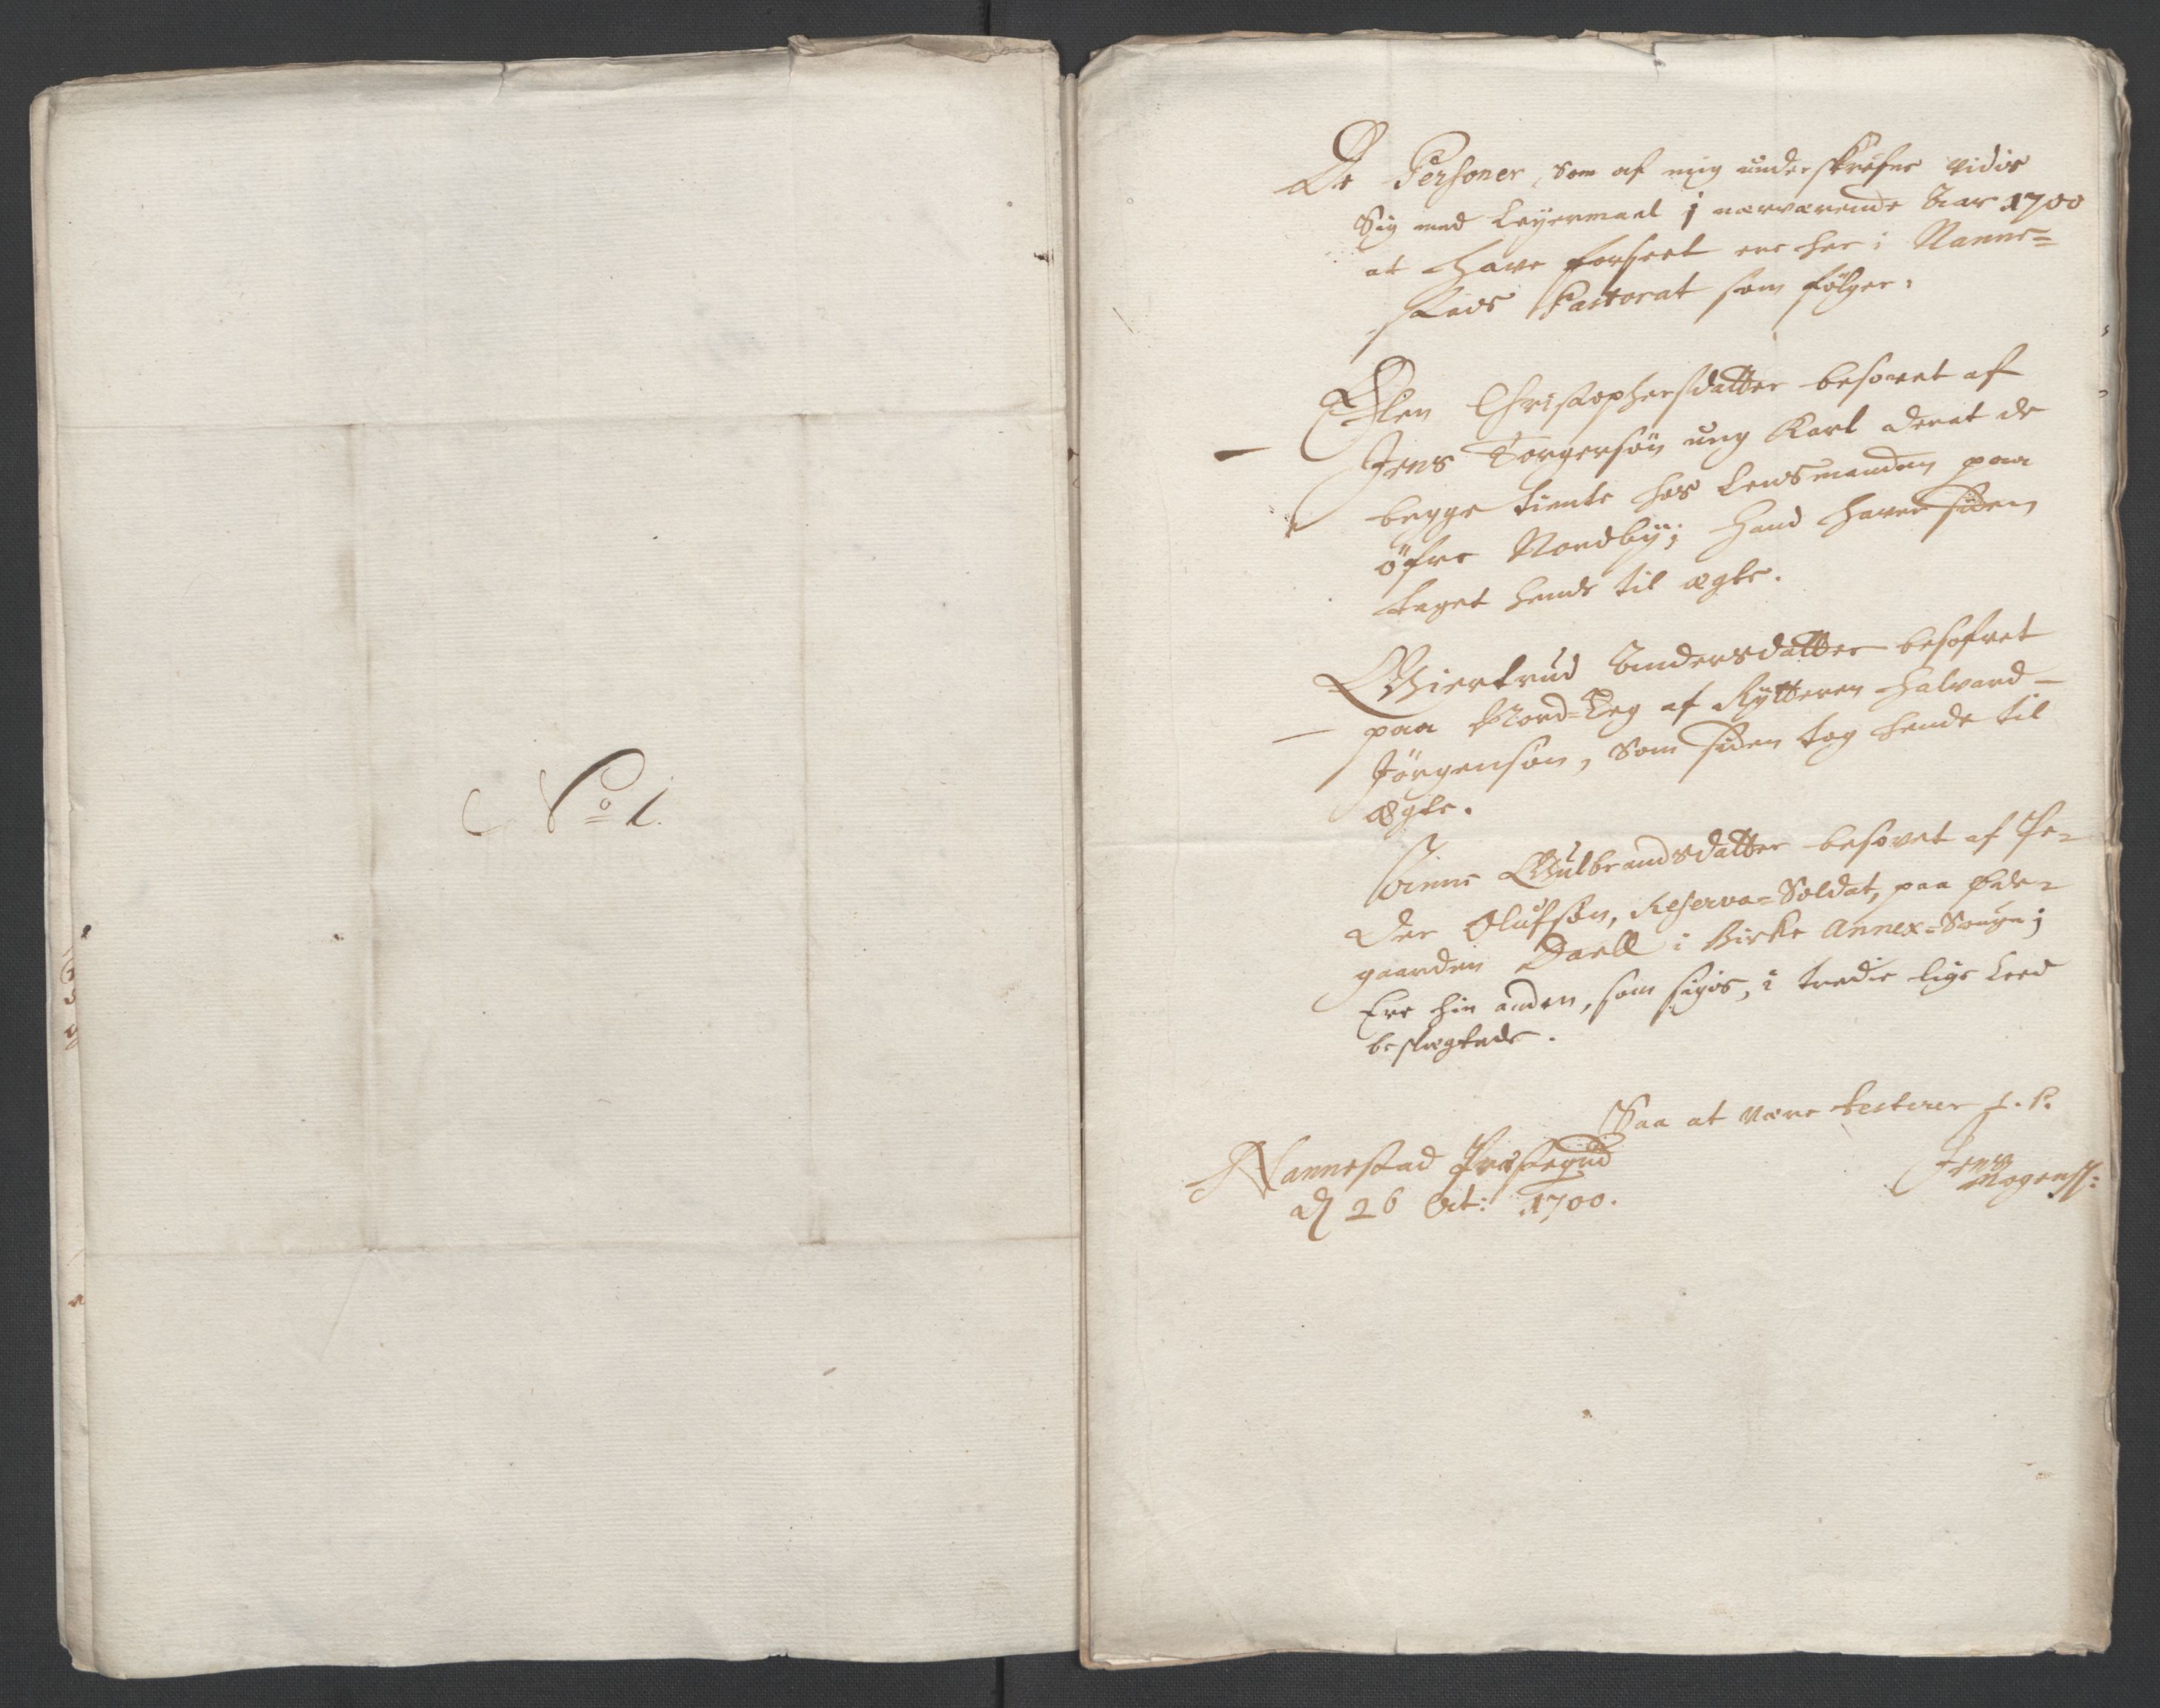 No 1.
De Personer, som af mig underskrefne vides
Sig med Leyermaal i nærværende Aar 1700
at have forseet ere her i Nanne=
stads Pastorat som følger:
Elen Christophersdatter besovet af
Jens Torgersøn ung Karl der at de
begge tiente hos Lensmanden paa
öfre Nordby; hand haver siden
taget hende til ægte.
Giertrud Andersdatter besofvet
paa Nord=Leg af Rytteren Halvard
Jörgensøn, som siden tog hende til
ægte.
Anne Gulbrandsdatter besovet af Pe=
der Olufsøn, Reserva=Soldat, paa Øde=
gaarden Daell i Birke Annex=Sougn;
Ere hin anden, som siges, i tredie lige Leed
beslægtede.
Saa at være testerer
Nannestad Præstegaard
d 26 Oct: 1700.
Jens
Mogenss: